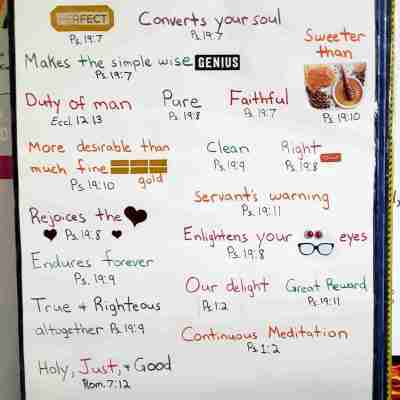 PERFECT
Ps. 19:7
Converts your soul
Ps. 19:7
Sweeter
than
Ps. 19:10
Makes the simple wise GENIUS
Ps. 19:7
Duty of man
Eccl. 12:13
Pure
Ps. 19:8
Faithful
Ps. 19:7
More desirable than
much fine
gold
Ps. 19:10
Clean
Ps. 19:9
Right
Ps. 19:8
Servant's warning
Ps. 19:11
Rejoices the
Ps. 19:8
Enlightens your eyes
Ps. 19:8
Endures forever
Ps. 19:9
Our delight
Ps. 1:2
Great Reward
Ps. 19:11
True + Righteous
altogether Ps. 19:9
Continuous Meditation
Ps. 1:2
Holy, Just, + Good
Rom. 7:12